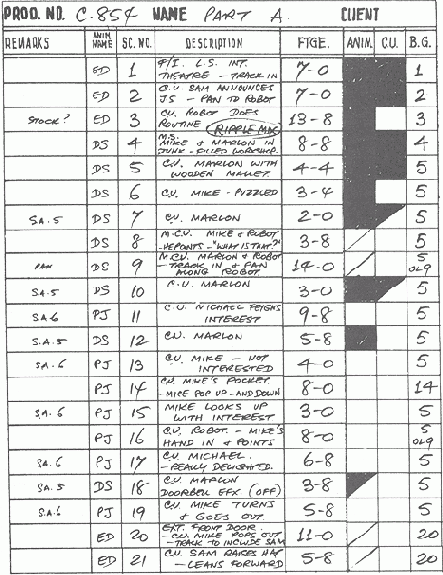 PROD. NO. C.854 NAME PART A. CLIENT
REMARKS ANIM NAME SC. NO. DESCRIPTION FTGE. ANIM. C.U. B.G.
ED 1 F/I. L.S. INT. THEATRE - TRACK IN 7-0 1
ED 2 C.U SAM ANNOUNCES JS - PAN TO ROBOT 7-0 2
STOCK? ED 3 C.U. ROBOT DOES ROUTINE RIPPLE MIX 13-8 3
DS 4 M.S. MIKE & MARLON IN JUNK-FILLED WORKSHOP. 8-8 4
DS 5 C.U. MARLON WITH WOODEN MALLET. 4-4 5
DS 6 C.U. MIKE - PUZZLED 3-4 5
SA.5 DS 7 C.U. MARLON 2-0 5
DS 8 M.C.U. MIKE & ROBOT - HE POINTS - "WHAT IS THAT?" 3-8 5
PAN DS 9 M.C.U. MARLON & ROBOT - TRACK IN & PAN ALONG ROBOT 14-0 5 OL9
SA.5 DS 10 C.U. MARLON 3-0 5
SA6 PJ 11 C.U. MICHAEL FEIGNS INTEREST 9-8 5
S.A.5 DS 12 C.U. MARLON 5-8 5
S.A.6 PJ 13 C.U. MIKE - NOT INTERESTED 4-0 5
PJ 14 C.U. MIKE'S POCKET - MICE POP UP - AND DOWN 8-0 14
S.A.6 PJ 15 MIKE LOOKS UP WITH INTEREST 3-0 5
PJ 16 C.U. ROBOT - MIKE'S HAND IN & POINTS 8-0 5 OL9
S.A.6 PJ 17 C.U. MICHAEL. - REALLY DELIGHTED. 6-8 5
S.A.5 DS 18 C.U. MARLON DOORBELL EFX (OFF) 3-8 5
S.A.6 PJ 19 C.U. MIKE TURNS & GOES OUT. 5-8 5
ED 20 EXT. FRONT DOOR. - C.U. MIKE POPS OUT - TRACK TO INCLUDE SAM 11-0 20
ED 21 C.U. SAM RAISES HAT - LEANS FORWARD 5-8 20